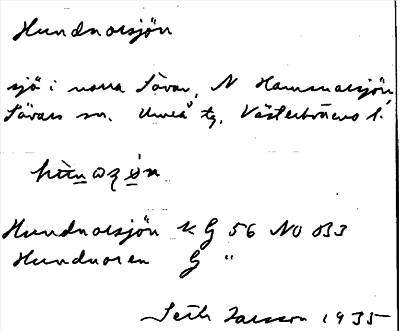 Hundnorsjön
sjö i norra Sävar, N Hammarsjön,
Sävars sn. Umeå tg. Västerbottens l.
Hundnorsjön K G 56 NO 033
Hundnoren G "
Seth Larsson 1935